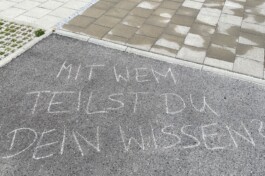 MIT WEM
TEILST DU
DEIN WISSEN?